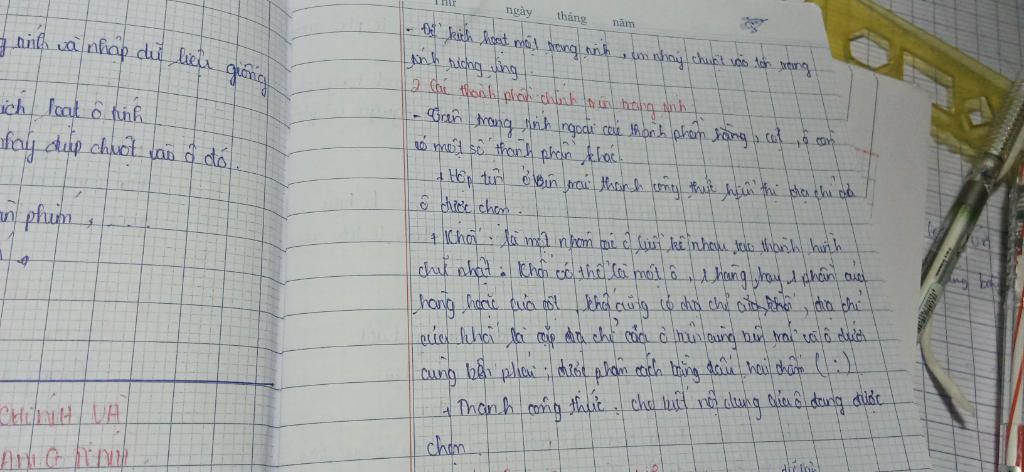 g tính và nhập dữ liệu giống
ích hoạt ô tính
nháy đúp chuột vào ô đó.
phím, ......
CHÍNH VÀ
Thứ ngày tháng năm
- Để kích hoạt một trang tính, em nháy chuột vào tên trang
tính tương ứng.
2) Các thành phần chính trên trang tính
- Trên trang tính ngoài các thành phần hàng, cột, ô còn
có một số thành phần khác.
+ Hộp tên ở bên trái thanh công thức hiển thị địa chỉ của
ô được chọn.
+ Khối: là một nhóm các ô liền kề nhau tạo thành hình
chữ nhật. Khối có thể là một ô, 1 hàng, hay 1 phần của
hàng hoặc của cột, khối cũng có địa chỉ của khối, địa chỉ
của khối là cặp địa chỉ của ô trên cùng bên trái và ô dưới
cùng bên phải; được phân cách bằng dấu hai chấm (:)
+ Thanh công thức: cho biết nội dung của ô đang được
chọn